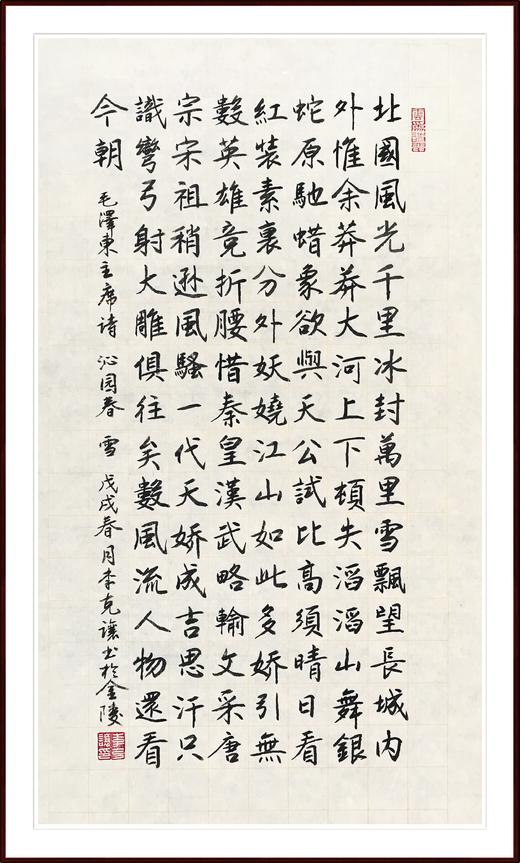 北國風光千里冰封萬里雪飄望長城内
外惟余莽莽大河上下頓失滔滔山舞銀
蛇原馳蜡象欲與天公試比高須晴日看
紅裝素裏分外妖嬈江山如此多娇引無
數英雄竞折腰惜秦皇漢武略輸文采唐
宗宋祖稍遜風騷一代天娇成吉思汗只
識彎弓射大雕俱往矣數風流人物還看
今朝
毛澤東主席诗 沁园春 雪 戊戌春月李克讓书於金陵